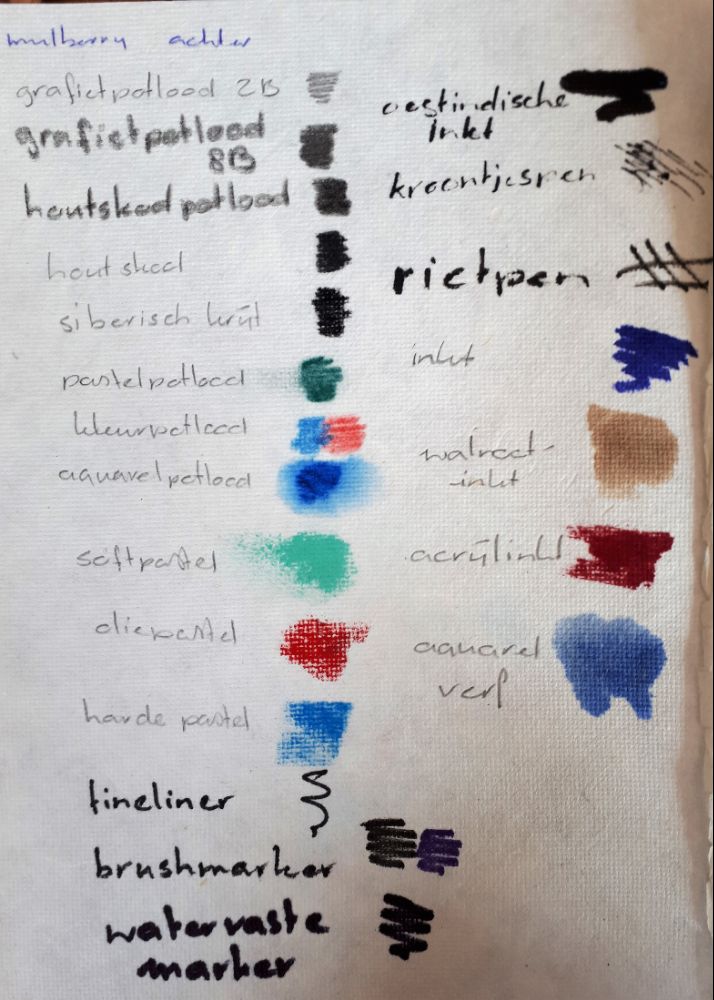 mulberry achter
grafietpotlood 2B
grafietpotlood
8B
houtskoolpotlood
houtskool
siberisch krijt
pastelpotlood
kleurpotlood
aquarelpotlood
softpastel
oliepastel
harde pastel
fineliner
brushmarker
watervaste
marker
oostindische
inkt
kroontjespen
rietpen
inkt
walnoot-
inkt
acrylinkt
aquarel
verf